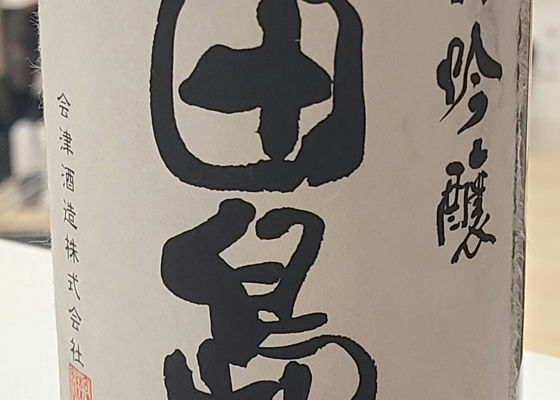 吟醸
田島
会津酒造株式会社